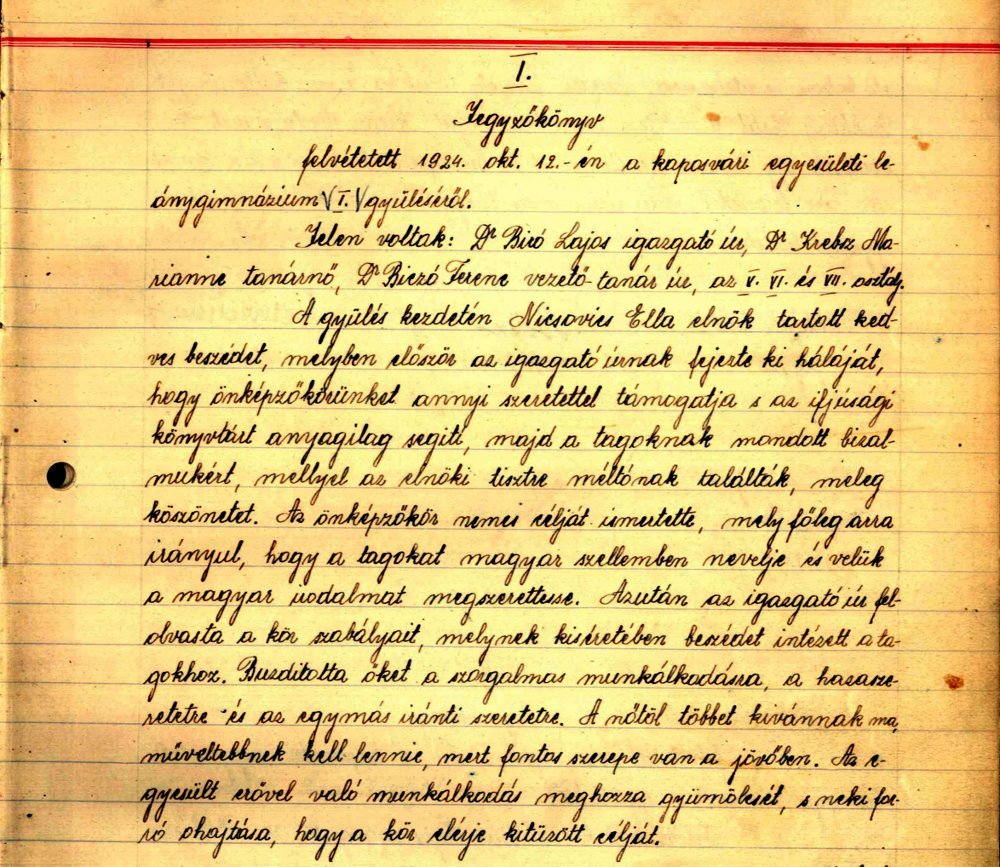 I.
Jegyzőkönyv
felvétetett 1924. okt. 12.-én a kaposvári egyesületi le-
ánygimnázium \/ I. \/ gyüléséről.
Jelen voltak: Dr Biró Lajos igazgató úr, Dr Krebsz Ma-
rianne tanárnő, Dr Biczó Ferenc vezető-tanár úr, az V. VI. és VII. osztály.
A gyülés kezdetén Nicsovics Ella elnök tartott ked-
ves beszédet, melyben először az igazgató úrnak fejezte ki háláját,
hogy önképzőkörünket annyi szeretettel támogatja s az ifjúsági
könyvtárt anyagilag segiti, majd a tagoknak mondott bizal-
mukért, mellyel az elnöki tisztre méltónak találták, meleg
köszönetet. Az önképzőkör nemes célját ismertette, mely főleg arra
irányul, hogy a tagokat magyar szellemben nevelje és velük
a magyar irodalmat megszerettesse. Azután az igazgató úr fel-
olvasta a kör szabályait, melynek kiséretében beszédet intézett a ta-
gokhoz. Buzditotta őket a szorgalmas munkálkodásra, a hazasze-
retetre és az egymás iránti szeretetre. A nőtől többet kivánnak ma,
műveltebbnek kell lennie, mert fontos szerepe van a jövőben. Az e-
gyesült erővel való munkálkodás meghozza gyümölcsét, s neki for-
ró ohajtása, hogy a kör elérje kitüzött célját.